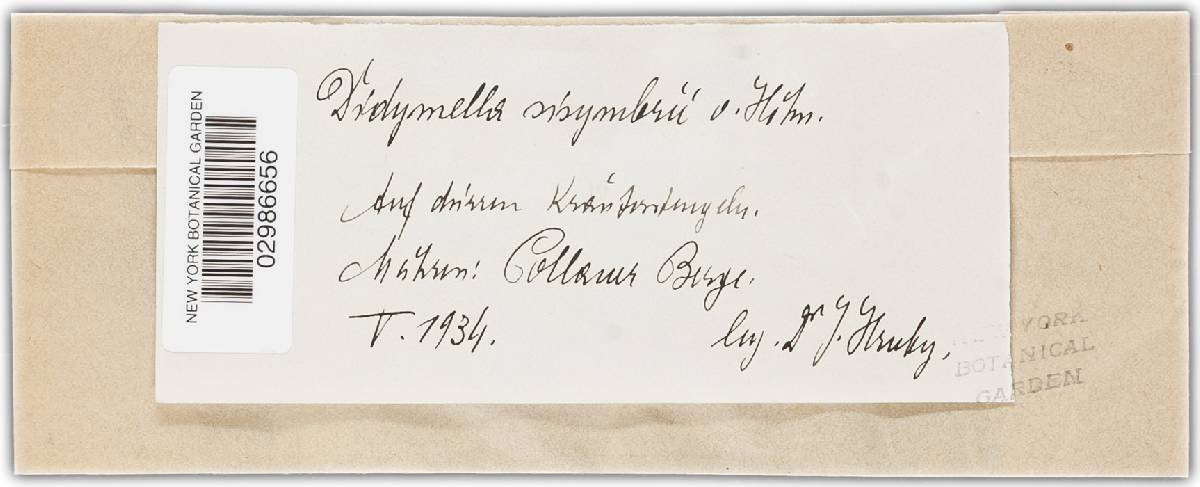 NEW YORK BOTANICAL GARDEN
02986656
Didymella sisymbrii v. Höhn.
Auf dürren Kräuterstengeln.
Mähren: Pollauer Berge.
V. 1934.
leg. Dr J. Hruby.
NEW YORK
BOTANICAL
GARDEN